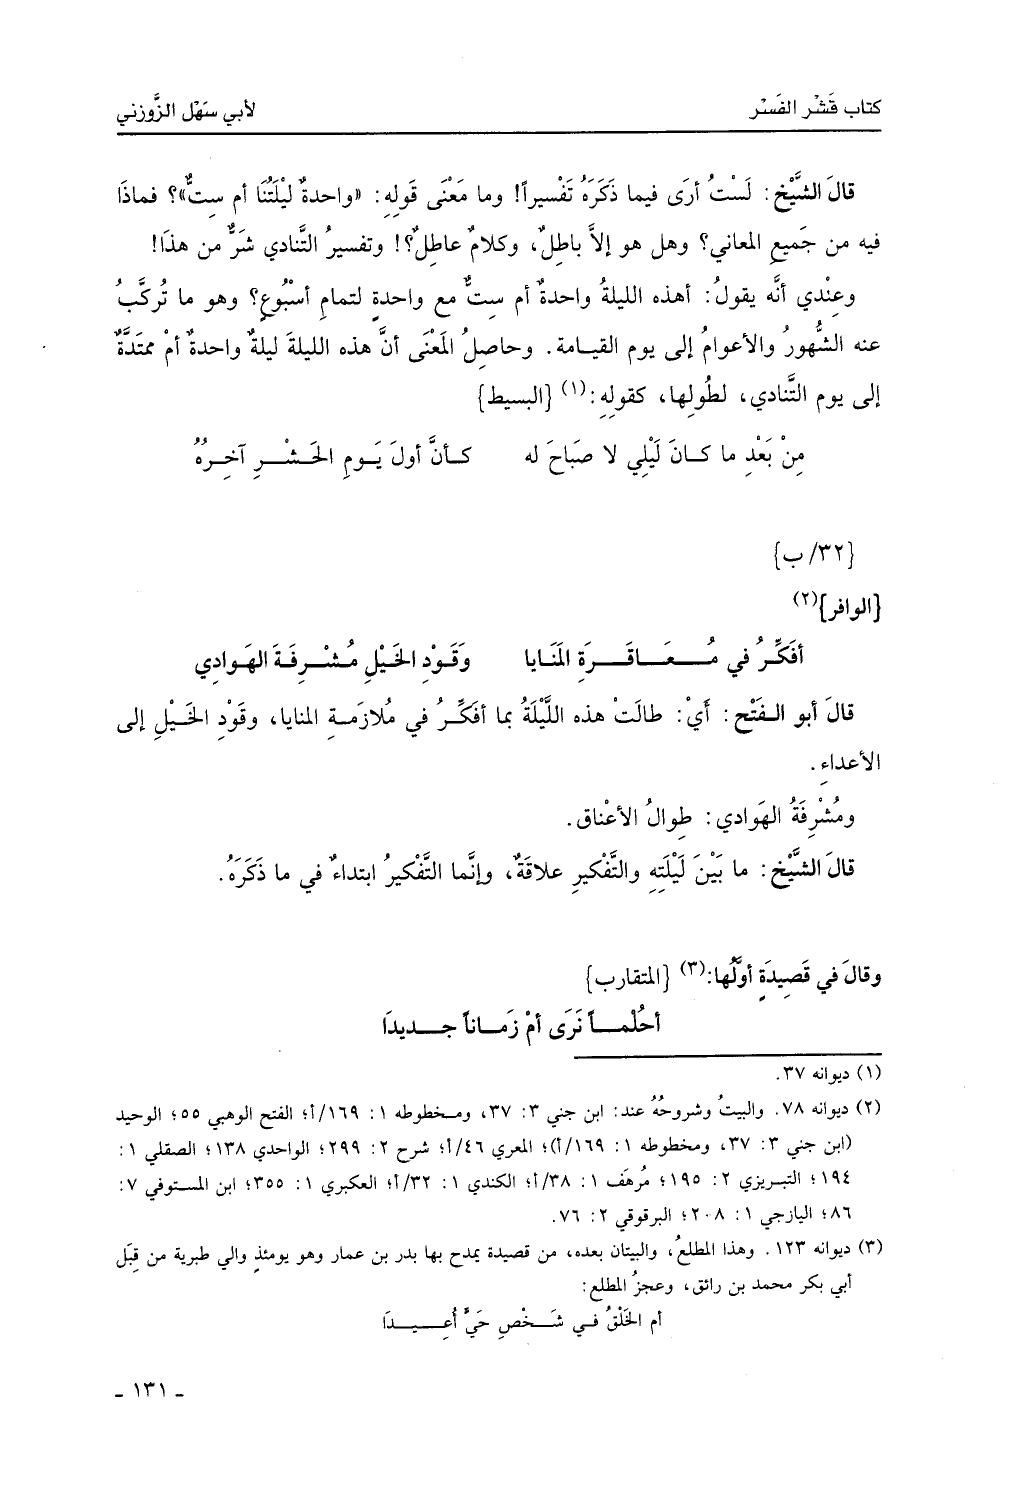 كتاب قَشْر الفَسْر لأبي سَهْل الزَّوزني
قالَ الشَّيْخ: لَسْتُ أرَى فيما ذَكَرَهُ تَفْسيراً! وما مَعْنَى قَولِهِ: «واحدةٌ لَيْلَتُنَا أم ستٌّ»؟ فماذَا
فيه من جَميعِ المعاني؟ وهل هو إلاَّ باطلٌ، وكلامٌ عاطلٌ؟! وتفسيرُ التَّنادي شَرٌّ من هذَا!
وعِنْدي أنَّه يقولُ: أهذه الليلةُ واحدةٌ أم ستٌّ مع واحدةٍ لتمامِ أسْبُوعٍ؟ وهو ما تُركَّبُ
عنه الشُّهورُ والأعوامُ إلى يوم القيامة. وحاصلُ المَعْنَى أنَّ هذه الليلةَ ليلةٌ واحدةٌ أمْ ممتَدَّةٌ
إلى يوم التَّنادي، لطُولِها، كقولِهِ:(١) {البسيط}
مِنْ بَعْدِ ما كــانَ لَيْلِي لا صبَاحَ له كــأنَّ أولَ يَــومِ الحَــشْــرِ آخــرُهُ
{٣٢/ ب}
{الوافر}(٢)
أفَكِّرُ في مُــعَــاقَــرَةِ المَنَايا وَقَوْدِ الخَيْلِ مُشْــرِفَةَ الهَوادي
قالَ أبو الــفَتْح: أَيْ: طالَتْ هذه اللَّيْلَةُ بما أفكِّــرُ في مُلازمَــةِ المنايا، وقَوْدِ الخَــيْلِ إلى
الأعداءِ.
ومُشْرِفَةُ الهَوادي: طِوالُ الأعْناق.
قالَ الشَّيْخ: ما بَيْنَ لَيْلَتِهِ والتَّفْكيرِ علاقَةٌ، وإنَّما التَّفْكيرُ ابتداءٌ في ما ذَكَرَهُ.
وقالَ في قَصِيدَةٍ أوَّلُها:(٣) {المتقارب}
أحُلْمــاً نَرَى أمْ زَمَــاناً جــديدَا
(١) ديوانه ٣٧.
(٢) ديوانه ٧٨. والبيتُ وشروحُهُ عند: ابن جني ٣: ٣٧، ومخطوطه ١: ١٦٩/أ؛ الفتح الوهبي ٥٥؛ الوحيد
(ابن جني ٣: ٣٧، ومخطوطه ١: ١٦٩/أ)؛ المعري ٤٦/أ؛ شرح ٢: ٢٩٩؛ الواحدي ١٣٨؛ الصقلي ١:
١٩٤؛ التبريزي ٢: ١٩٥؛ مُرهَف ١: ٣٨/أ؛ الكندي ١: ٣٢/أ؛ العكبري ١: ٣٥٥؛ ابن المستوفي ٧:
٨٦؛ اليازجي ١: ٢٠٨؛ البرقوقي ٢: ٧٦.
(٣) ديوانه ١٢٣. وهذا المطلعُ، والبيتان بعده، من قصيدة يمدح بها بدر بن عمار وهو يومئذٍ والي طبرية من قِبَلِ
أبي بكر محمد بن رائق، وعجزُ المطلع:
أم الخَلْقُ فــي شَــخْصِ حَيٍّ أُعِــيــدَا
ـ ١٣١ ـ